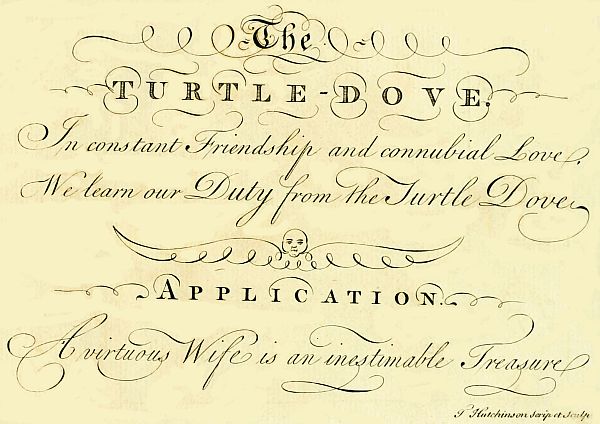 The
TURTLE-DOVE.
In constant Friendship and connubial Love,
We learn our Duty from the Turtle Dove
APPLICATION.
A virtuous Wife is an inestimable Treasure
T. Hutchinson scrip et sculp